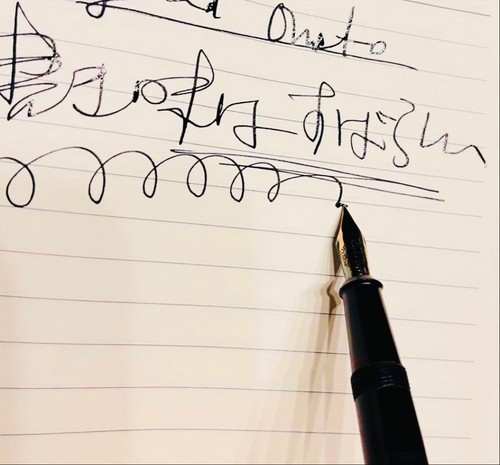 Onoto
書き味は すばらしい